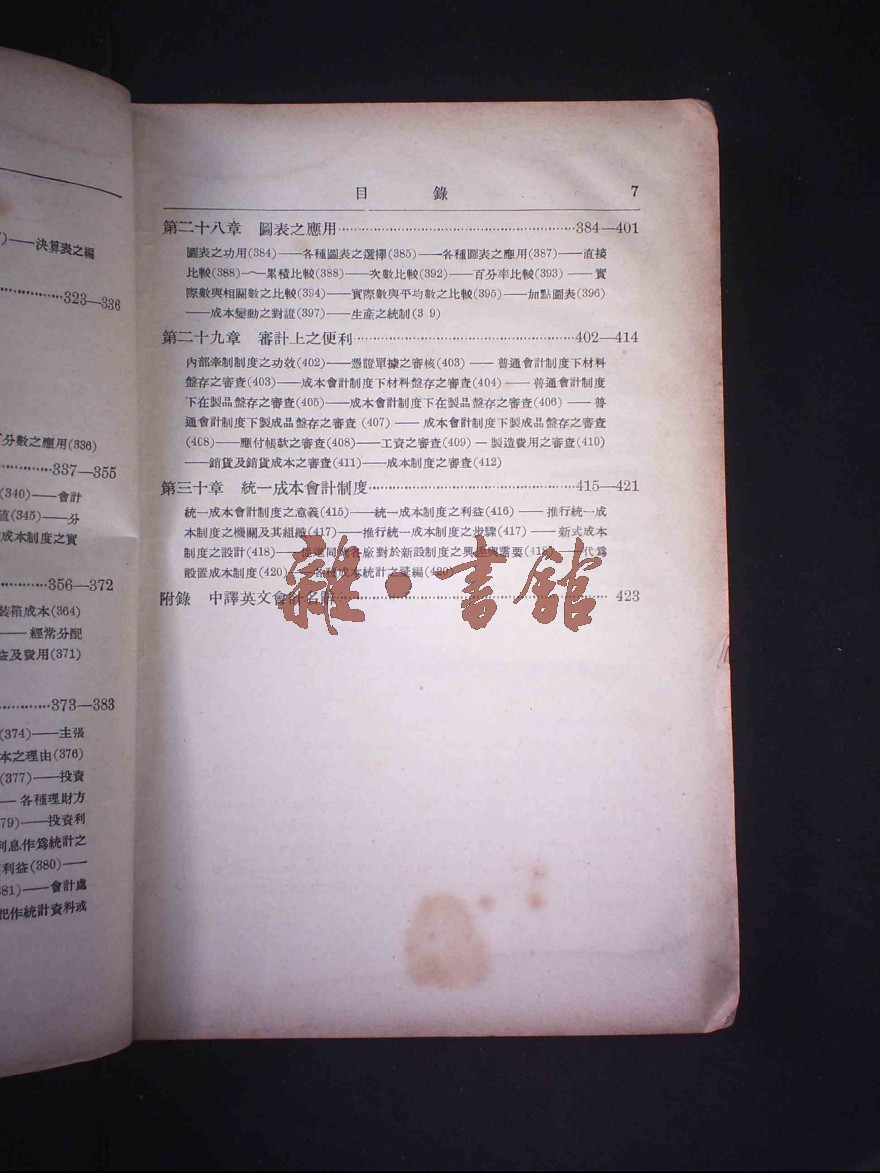 )——決算表之編
323—336
分數之應用(336)
337—355
(340)——會計
值(345)——分
成本制度之實
356—372
裝箱成本(364)
——經常分配
益及費用(371)
373—383
(374)——主張
本之理由(376)
(377)——投資
——各種理財方
79)——投資利
利息作爲統計之
利益(380)——
381)——會計處
把作統計資料或
目 錄 7
第二十八章 圖表之應用……384—401
圖表之功用(384)——各種圖表之選擇(385)——各種圖表之應用(387)——直接
比較(388)——累積比較(388)——次數比較(392)——百分率比較(393)——實
際數與相關數之比較(394)——實際數與平均數之比較(395)——加點圖表(396)
——成本變動之對證(397)——生產之統制(3 9)
第二十九章 審計上之便利……402—414
內部牽制制度之功效(402)——憑證單據之審核(403)——普通會計制度下材料
盤存之審查(403)——成本會計制度下材料盤存之審查(404)——普通會計制度
下在製品盤存之審查(405)——成本會計制度下在製品盤存之審查(406)——普
通會計制度下製成品盤存之審查(407)——成本會計制度下製成品盤存之審查
(408)——應付帳款之審查(408)——工資之審查(409)—製造費用之審查(410)
——銷貨及銷貨成本之審查(411)——成本制度之審查(412)
第三十章 統一成本會計制度……415—421
統一成本會計制度之意義(415)——統一成本制度之利益(416)——推行統一成
本制度之機關及其組織(417)——推行統一成本制度之步驟(417)——新式成本
制度之設計(418)——促進同業各廠對於新設制度之興趣與需要(418)——代爲
設置成本制度(420)——各種成本統計之彙編(420)
附錄 中譯英文會計名辭……423
雜·書館